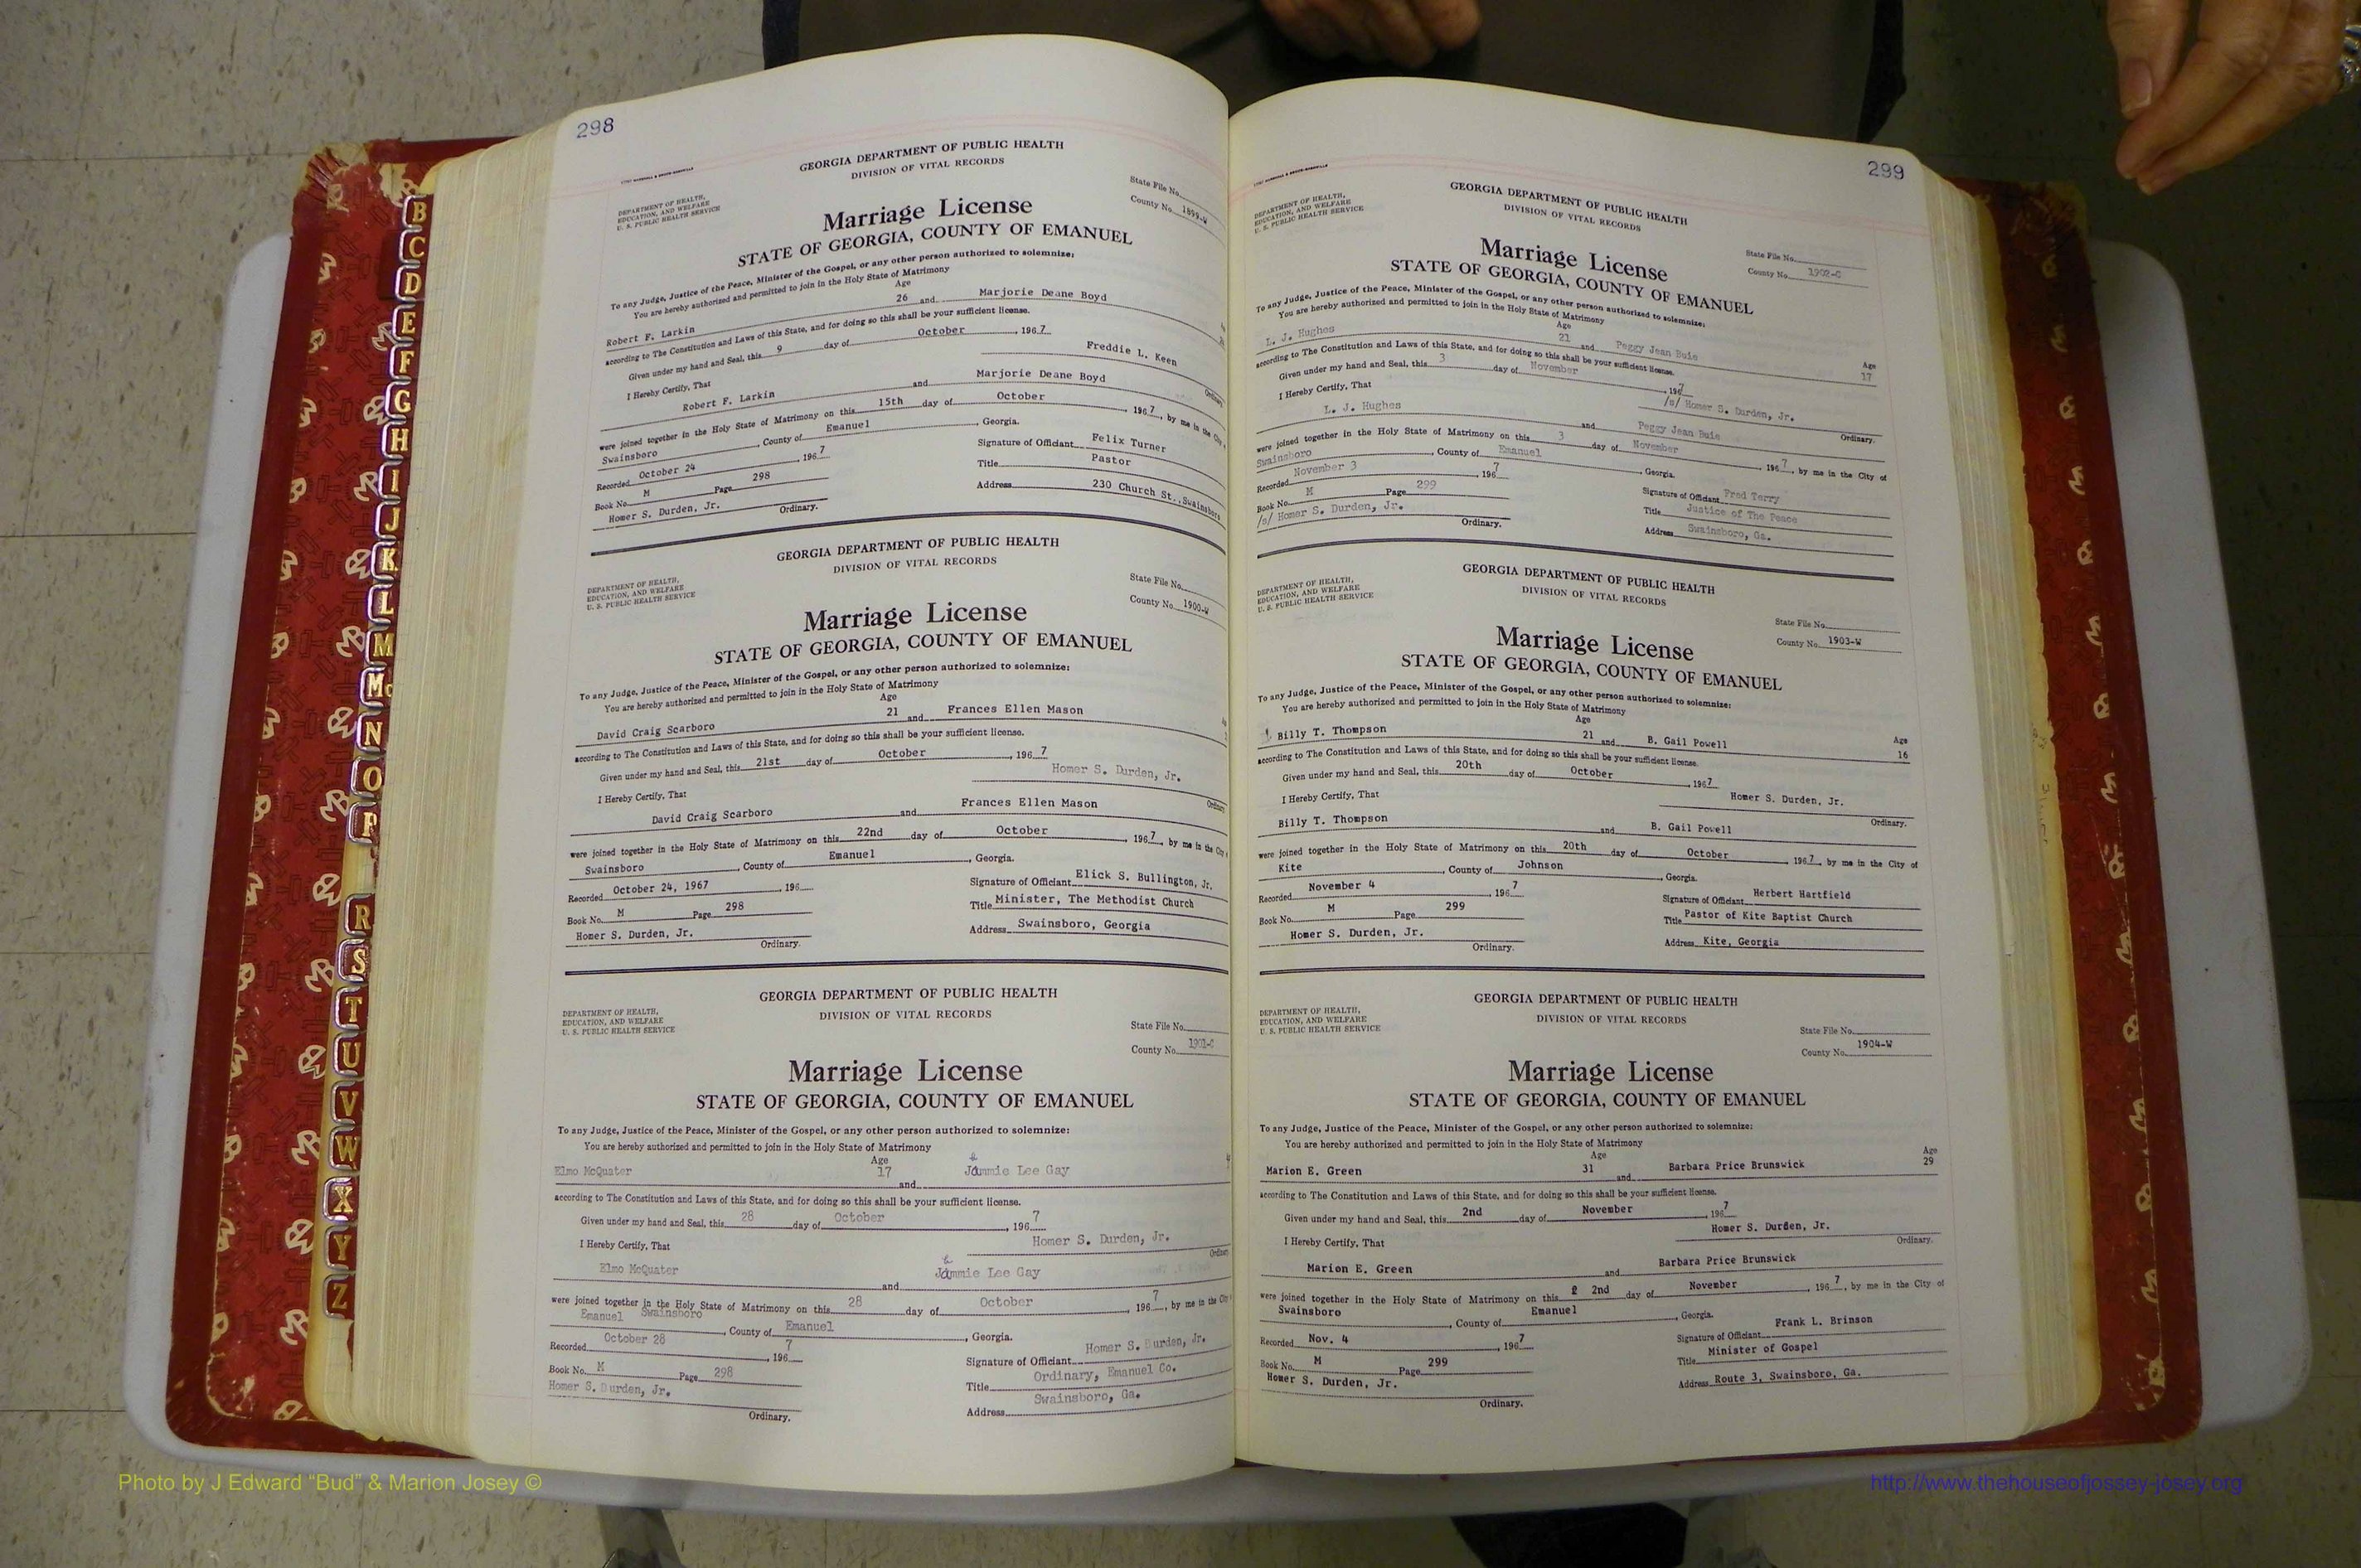 298
GEORGIA DEPARTMENT OF PUBLIC HEALTH
DIVISION OF VITAL RECORDS
DEPARTMENT OF HEALTH,
EDUCATION, AND WELFARE
U. S. PUBLIC HEALTH SERVICE
State File No.
County No. 1899-W
Marriage License
STATE OF GEORGIA, COUNTY OF EMANUEL
To any Judge, Justice of the Peace, Minister of the Gospel, or any other person authorized to solemnize:
You are hereby authorized and permitted to join in the Holy State of Matrimony
Age
Robert F. Larkin 26 and Marjorie Deane Boyd
according to The Constitution and Laws of this State, and for doing so this shall be your sufficient license.
Given under my hand and Seal, this 9 day of October, 1967
Freddie L. Keen
I Hereby Certify, That Ordinary
Robert F. Larkin and Marjorie Deane Boyd
were joined together in the Holy State of Matrimony on this 15th day of October, 1967, by me in the City
Swainsboro, County of Emanuel, Georgia.
Recorded October 24, 1967
Signature of Officiant Felix Turner
Book No. M Page 298
Title Pastor
Homer S. Durden, Jr.
Address 230 Church St., Swainsboro
Ordinary.
GEORGIA DEPARTMENT OF PUBLIC HEALTH
DIVISION OF VITAL RECORDS
DEPARTMENT OF HEALTH,
EDUCATION, AND WELFARE
U. S. PUBLIC HEALTH SERVICE
State File No.
County No. 1900-W
Marriage License
STATE OF GEORGIA, COUNTY OF EMANUEL
To any Judge, Justice of the Peace, Minister of the Gospel, or any other person authorized to solemnize:
You are hereby authorized and permitted to join in the Holy State of Matrimony
Age
David Craig Scarboro 21 and Frances Ellen Mason
according to The Constitution and Laws of this State, and for doing so this shall be your sufficient license.
Given under my hand and Seal, this 21st day of October, 1967
Homer S. Durden, Jr.
I Hereby Certify, That Ordinary
David Craig Scarboro and Frances Ellen Mason
were joined together in the Holy State of Matrimony on this 22nd day of October, 1967, by me in the City
Swainsboro, County of Emanuel, Georgia.
Recorded October 24, 1967, 196
Signature of Officiant Elick S. Bullington, Jr.
Book No. M Page 298
Title Minister, The Methodist Church
Homer S. Durden, Jr.
Address Swainsboro, Georgia
Ordinary.
GEORGIA DEPARTMENT OF PUBLIC HEALTH
DIVISION OF VITAL RECORDS
DEPARTMENT OF HEALTH,
EDUCATION, AND WELFARE
U. S. PUBLIC HEALTH SERVICE
State File No.
County No. 1901-C
Marriage License
STATE OF GEORGIA, COUNTY OF EMANUEL
To any Judge, Justice of the Peace, Minister of the Gospel, or any other person authorized to solemnize:
You are hereby authorized and permitted to join in the Holy State of Matrimony
Age
Elmo McQuater 17 and Lee Gay
according to The Constitution and Laws of this State, and for doing so this shall be your sufficient license.
Given under my hand and Seal, this 28 day of October, 1967
Homer S. Durden, Jr.
I Hereby Certify, That Ordinary
Elmo McQuater and Lee Gay
were joined together in the Holy State of Matrimony on this 28 day of October, 1967, by me in the City
Emanuel Swainsboro, County of Emanuel, Georgia.
Recorded October 28, 1967
Signature of Officiant Homer S. Durden, Jr.
Book No. M Page 298
Title Ordinary, Emanuel Co.
Homer S. Durden, Jr.
Address Swainsboro, Ga.
Ordinary.
299
GEORGIA DEPARTMENT OF PUBLIC HEALTH
DIVISION OF VITAL RECORDS
DEPARTMENT OF HEALTH,
EDUCATION, AND WELFARE
U. S. PUBLIC HEALTH SERVICE
State File No.
County No. 1902-C
Marriage License
STATE OF GEORGIA, COUNTY OF EMANUEL
To any Judge, Justice of the Peace, Minister of the Gospel, or any other person authorized to solemnize:
You are hereby authorized and permitted to join in the Holy State of Matrimony
Age Age
L. J. Hughes 21 and Peggy Jean Buie 17
according to The Constitution and Laws of this State, and for doing so this shall be your sufficient license.
Given under my hand and Seal, this 3 day of November, 1967
/s/ Homer S. Durden, Jr.
I Hereby Certify, That Ordinary.
L. J. Hughes and Peggy Jean Buie
were joined together in the Holy State of Matrimony on this 3 day of November, 1967, by me in the City of
Swainsboro, County of Emanuel, Georgia.
Recorded November 3, 1967
Signature of Officiant Fred Terry
Book No. M Page 299
Title Justice of The Peace
/s/ Homer S. Durden, Jr.
Address Swainsboro, Ga.
Ordinary.
GEORGIA DEPARTMENT OF PUBLIC HEALTH
DIVISION OF VITAL RECORDS
DEPARTMENT OF HEALTH,
EDUCATION, AND WELFARE
U. S. PUBLIC HEALTH SERVICE
State File No.
County No. 1903-W
Marriage License
STATE OF GEORGIA, COUNTY OF EMANUEL
To any Judge, Justice of the Peace, Minister of the Gospel, or any other person authorized to solemnize:
You are hereby authorized and permitted to join in the Holy State of Matrimony
Age Age
Billy T. Thompson 21 and B. Gail Powell 16
according to The Constitution and Laws of this State, and for doing so this shall be your sufficient license.
Given under my hand and Seal, this 20th day of October, 1967
Homer S. Durden, Jr.
I Hereby Certify, That Ordinary.
Billy T. Thompson and B. Gail Powell
were joined together in the Holy State of Matrimony on this 20th day of October, 1967, by me in the City of
Kite, County of Johnson, Georgia.
Recorded November 4, 1967
Signature of Officiant Herbert Hartfield
Book No. M Page 299
Title Pastor of Kite Baptist Church
Homer S. Durden, Jr.
Address Kite, Georgia
Ordinary.
GEORGIA DEPARTMENT OF PUBLIC HEALTH
DIVISION OF VITAL RECORDS
DEPARTMENT OF HEALTH,
EDUCATION, AND WELFARE
U. S. PUBLIC HEALTH SERVICE
State File No.
County No. 1904-W
Marriage License
STATE OF GEORGIA, COUNTY OF EMANUEL
To any Judge, Justice of the Peace, Minister of the Gospel, or any other person authorized to solemnize:
You are hereby authorized and permitted to join in the Holy State of Matrimony
Age Age
Marion E. Green 31 and Barbara Price Brunswick 29
according to The Constitution and Laws of this State, and for doing so this shall be your sufficient license.
Given under my hand and Seal, this 2nd day of November, 1967
Homer S. Durden, Jr.
I Hereby Certify, That Ordinary.
Marion E. Green and Barbara Price Brunswick
were joined together in the Holy State of Matrimony on this 2nd day of November, 1967, by me in the City of
Swainsboro, County of Emanuel, Georgia.
Recorded Nov. 4, 1967
Signature of Officiant Frank L. Brinson
Book No. M Page 299
Title Minister of Gospel
Homer S. Durden, Jr.
Address Route 3, Swainsboro, Ga.
Ordinary.
B
C
D
E
F
G
H
I
J
K
L
M
Mc
N
O
P
R
S
T
U
V
W
X
Y
Z
Photo by J Edward “Bud” & Marion Josey ©
http://www.thehouseofjossey-josey.org